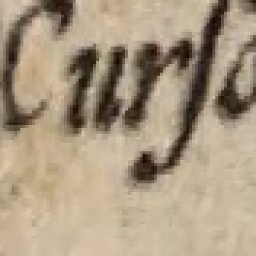 Curſo